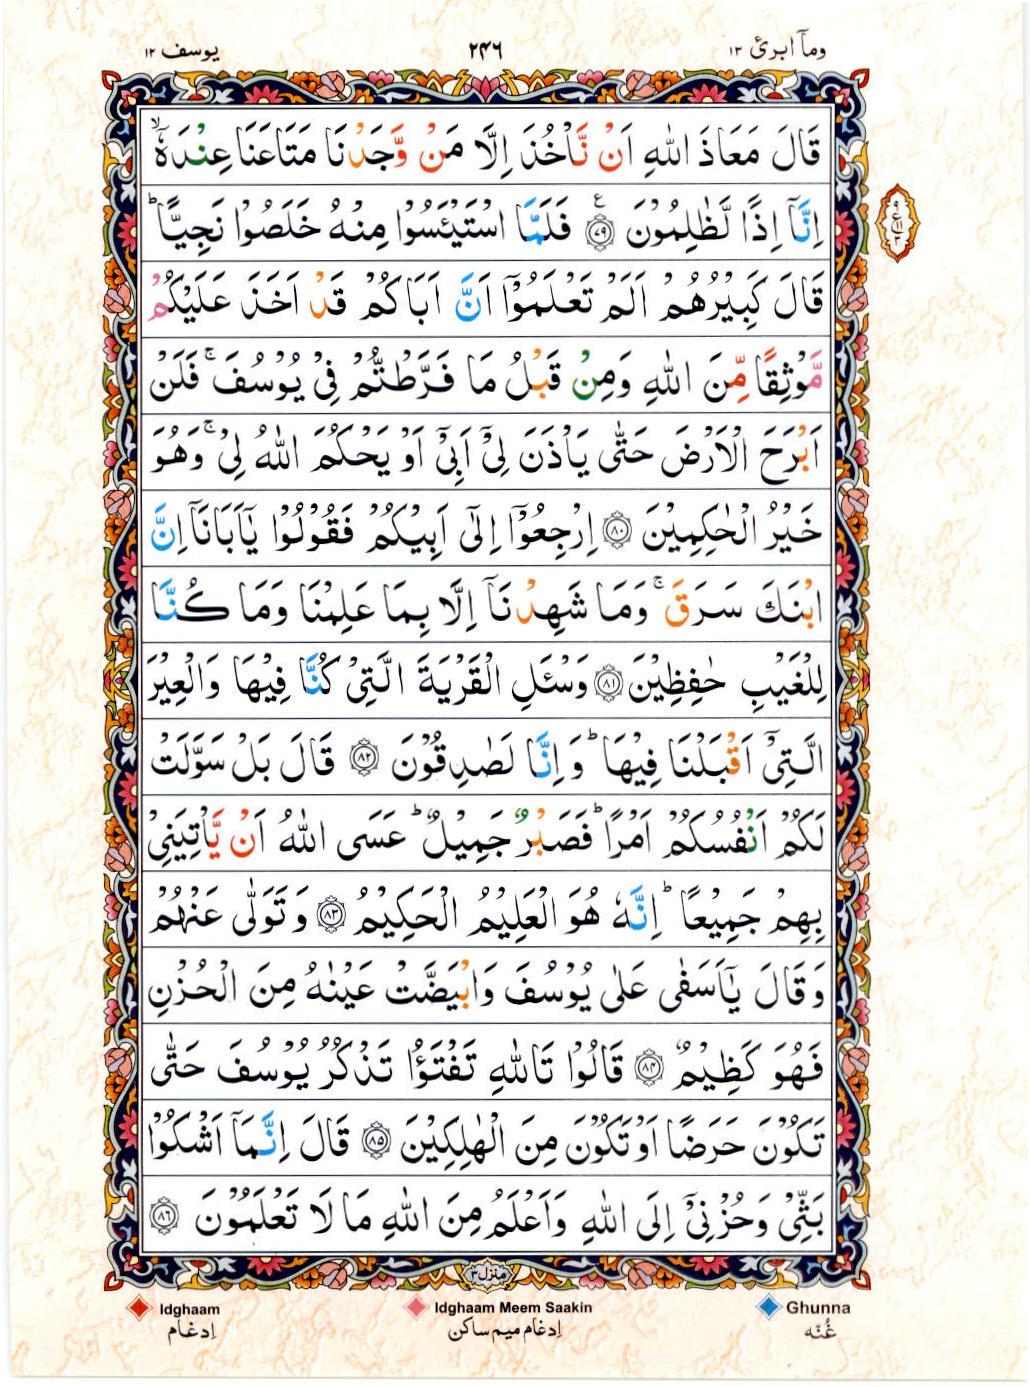 یوسف ۱۲
۲۴۶
ومآ ابرئ ۱۳
قَالَ مَعَاذَ اللّٰهِ اَنْ نَّاْخُذَ اِلَّا مَنْ وَّجَدْنَا مَتَاعَنَا عِنْدَهٗۤ ۙ
اِنَّاۤ اِذًا لَّظٰلِمُوْنَ ﴿۷۹﴾ ع فَلَمَّا اسْتَیْـَٔسُوْا مِنْهُ خَلَصُوْا نَجِیًّا ؕ
قَالَ كَبِیْرُهُمْ اَلَمْ تَعْلَمُوْۤا اَنَّ اَبَاكُمْ قَدْ اَخَذَ عَلَیْكُمْ
مَّوْثِقًا مِّنَ اللّٰهِ وَمِنْ قَبْلُ مَا فَرَّطْتُّمْ فِیْ یُوْسُفَ ۚ فَلَنْ
اَبْرَحَ الْاَرْضَ حَتّٰی یَاْذَنَ لِیْۤ اَبِیْۤ اَوْ یَحْكُمَ اللّٰهُ لِیْ ۚ وَهُوَ
خَیْرُ الْحٰكِمِیْنَ ﴿۸۰﴾ اِرْجِعُوْۤا اِلٰۤی اَبِیْكُمْ فَقُوْلُوْا یٰۤاَبَانَاۤ اِنَّ
ابْنَكَ سَرَقَ ۚ وَمَا شَهِدْنَاۤ اِلَّا بِمَا عَلِمْنَا وَمَا كُنَّا
لِلْغَیْبِ حٰفِظِیْنَ ﴿۸۱﴾ وَسْـَٔلِ الْقَرْیَةَ الَّتِیْ كُنَّا فِیْهَا وَالْعِیْرَ
الَّتِیْۤ اَقْبَلْنَا فِیْهَا ؕ وَاِنَّا لَصٰدِقُوْنَ ﴿۸۲﴾ قَالَ بَلْ سَوَّلَتْ
لَكُمْ اَنْفُسُكُمْ اَمْرًا ؕ فَصَبْرٌ جَمِیْلٌ ؕ عَسَی اللّٰهُ اَنْ یَّاْتِیَنِیْ
بِهِمْ جَمِیْعًا ؕ اِنَّهٗ هُوَ الْعَلِیْمُ الْحَكِیْمُ ﴿۸۳﴾ وَتَوَلّٰی عَنْهُمْ
وَقَالَ یٰۤاَسَفٰی عَلٰی یُوْسُفَ وَابْیَضَّتْ عَیْنٰهُ مِنَ الْحُزْنِ
فَهُوَ كَظِیْمٌ ﴿۸۴﴾ قَالُوْا تَاللّٰهِ تَفْتَؤُا تَذْكُرُ یُوْسُفَ حَتّٰی
تَكُوْنَ حَرَضًا اَوْ تَكُوْنَ مِنَ الْهٰلِكِیْنَ ﴿۸۵﴾ قَالَ اِنَّمَاۤ اَشْكُوْا
بَثِّیْ وَحُزْنِیْۤ اِلَی اللّٰهِ وَاَعْلَمُ مِنَ اللّٰهِ مَا لَا تَعْلَمُوْنَ ﴿۸۶﴾
۹
ع ۱۱
۳
منزل ۳
Idghaam
اِدغام
Idghaam Meem Saakin
اِدغام میم ساکن
Ghunna
غُنّه